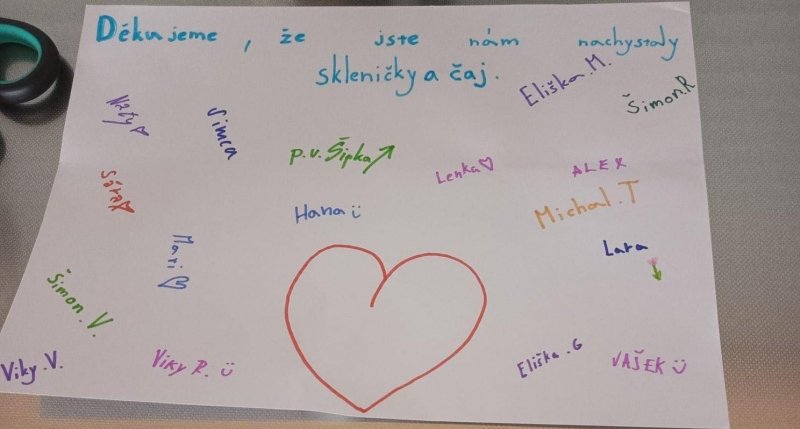 Děkujeme, že jste nám nachystaly
skleničky a čaj.
Eliška.M.
Šimon.R
Simča
p.v. Šipka
Lenka
ALEX
Sára
Hana
Michal.T
Mari
Lara
Šimon.V.
Viky.V.
Viky R.
Eliška.G
VAŠEK